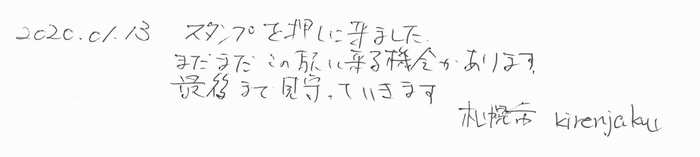 2020.01.13 スタンプを押しに来ました.
まだまだこの駅に来る機会があります.
最後まで見守っていきます
札幌市 kirenjaku